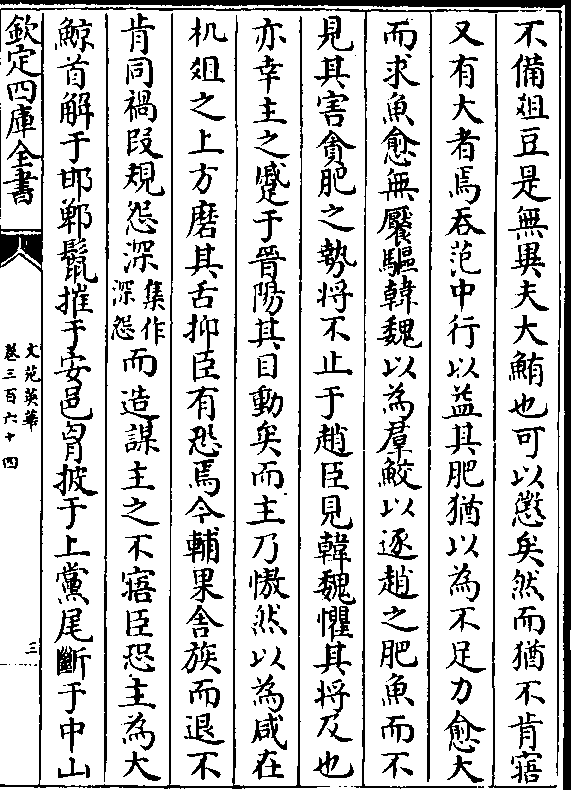 不備爼豆是無異夫大鮪也可以懲矣然而猶不肯寤
又有大者焉吞范中行以益其肥猶以為不足力愈大
而求魚愈無饜驅韓魏以為羣鮫以逐趙之肥魚而不
見其害貪肥之勢将不止于趙臣見韓魏懼其将及也
亦幸主之蹙于晉陽其目動矣而主乃慠然以為咸在
机爼之上方磨其舌抑臣有恐焉今輔果舍族而退不
肯同禍段規怨深集作深怨而造謀主之不寤臣恐主為大
鯨首解于邯鄲鬛摧于安邑胷披于上黨尾斷于中山
欽定四庫全書
文苑英華
卷三百六十四
三